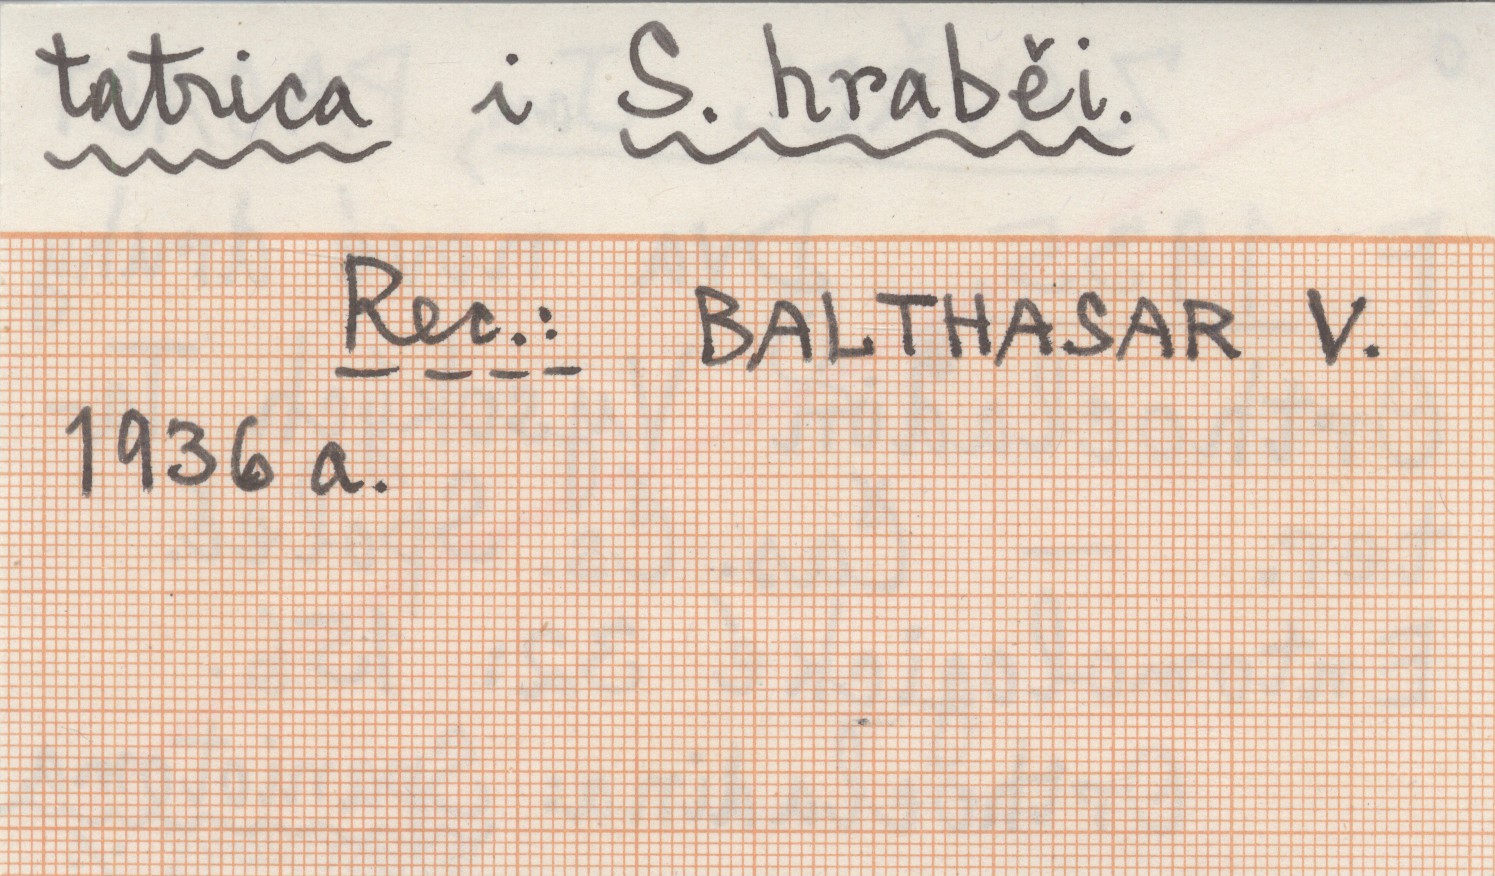 tatrica i S. hraběi.
Rec.: BALTHASAR V.
1936 a.